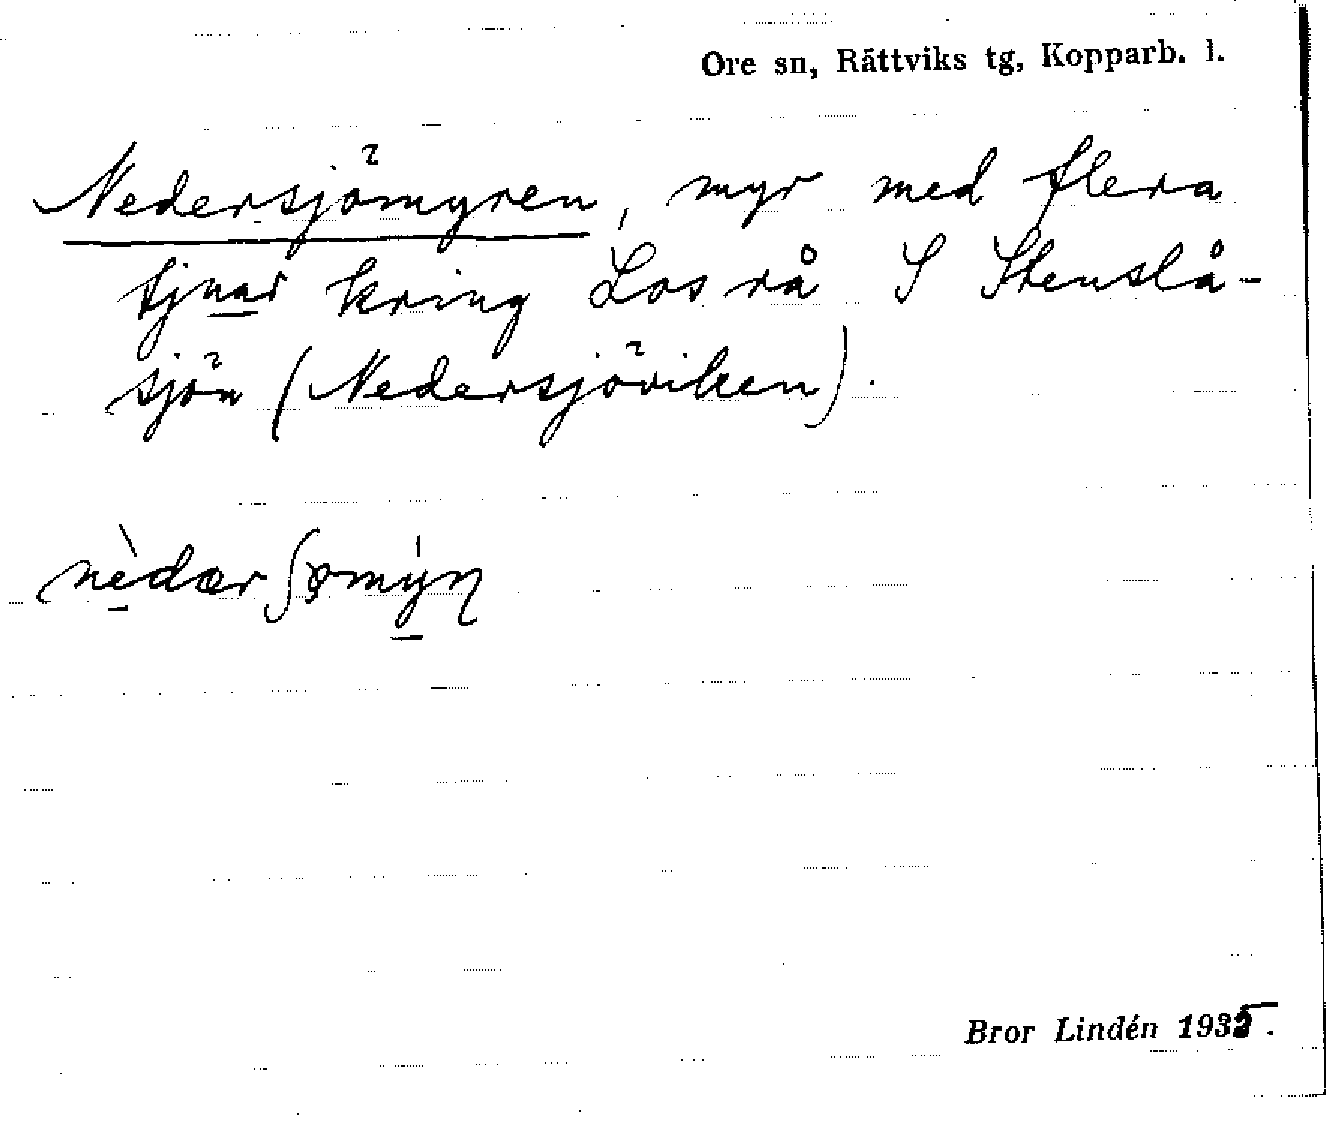 Ore sn, Rättviks tg, Kopparb. l.
Nedersjömyren, myr med flera
tjnar kring Los rå S Stenslå-
sjön (Nedersjöviken).
nèdærʃømýn
Bror Lindén 1935.